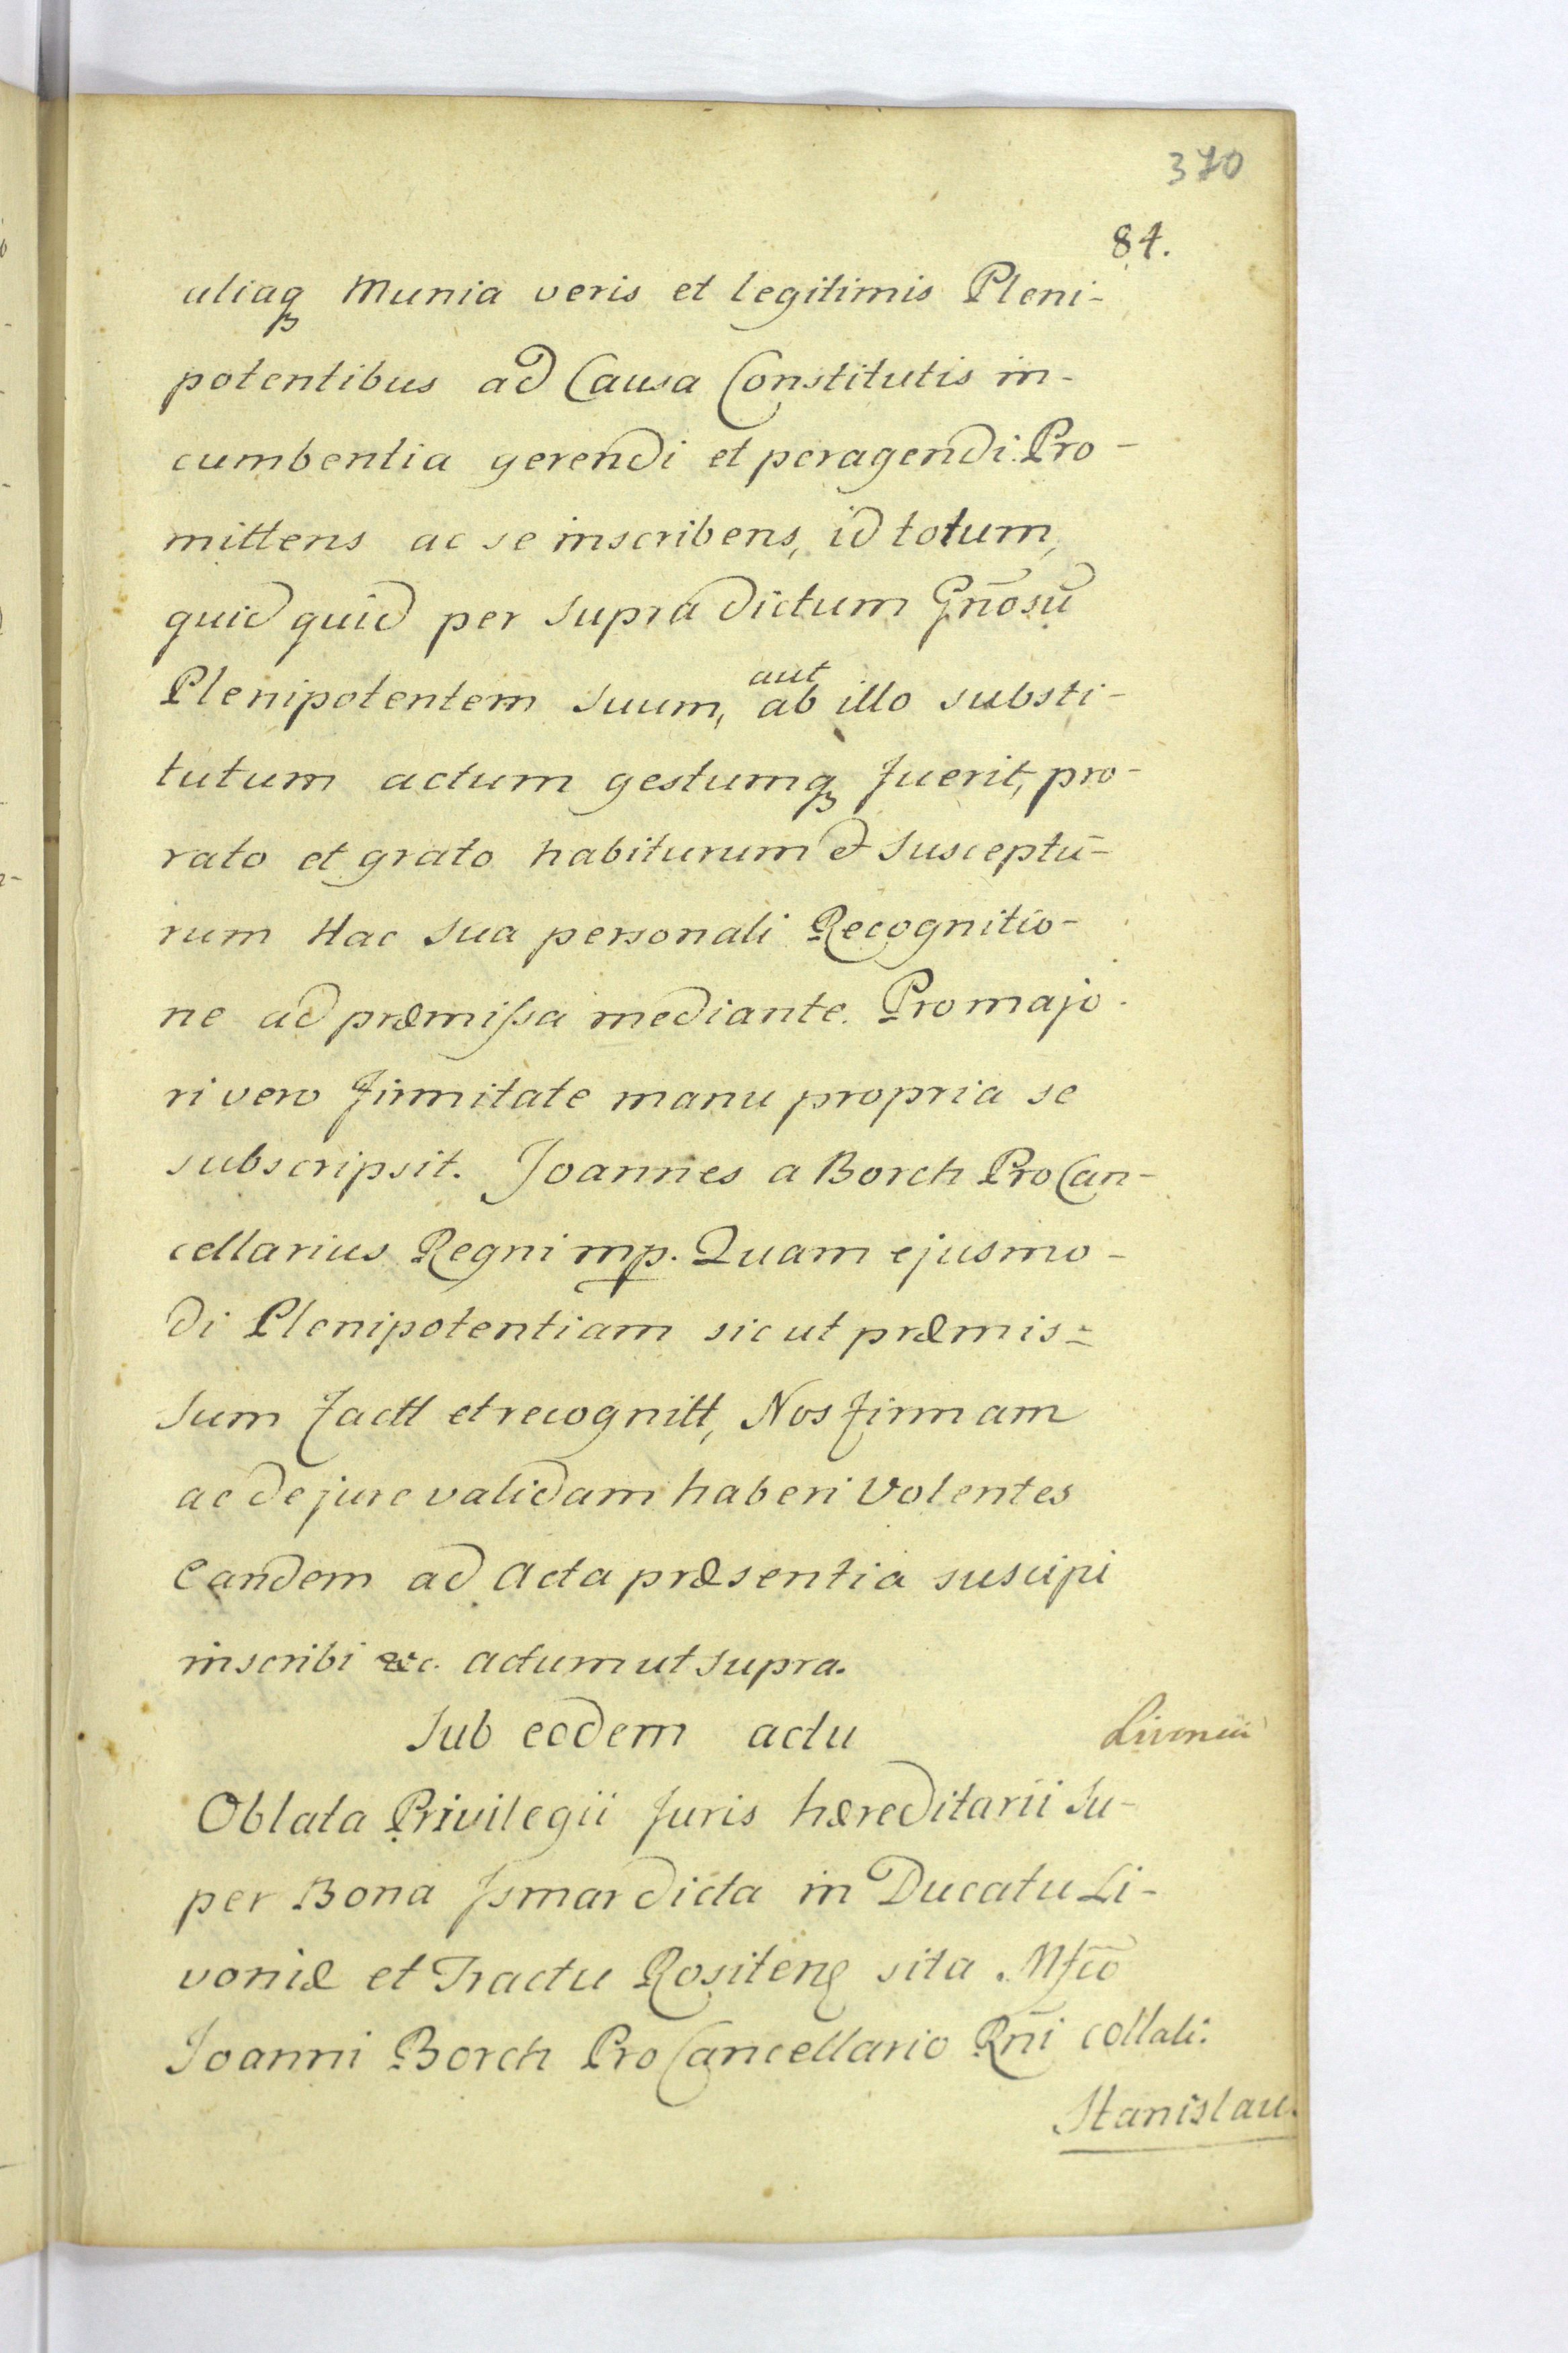 370
84.
aliaqꝫ Munia veris et legitimis Pleni-
potentibus ad Causa Constitutis in-
cumbentia gerendi et peragendi. Pro-
mittens ac se inscribens, id totum,
quid quid per supra dictum Gn̄osū
Plenipotentem suum, aut ab illo substi-
tutum actum gestumqꝫ fuerit, pro-
rato et grato habiturum & susceptū-
rum Hac sua personali Recognitio-
ne ad præmissa mediante. Pro majo-
ri vero firmitate manu propria se
subscripsit. Joannes a Borch ProCan-
cellarius Regni mp. Quam ejusmo-
di Plenipotentiam sic ut præmis=
sum factt et recognitt, Nos firmam
ac de jure validam haberi Volentes
Eandem ad Acta præsentia suscipi
inscribi &c. Actum ut supra.
Sub eodem actu
Oblata Privilegii Juris hæreditarii su-
per Bona Ismar dicta in Ducatu Li-
voniæ et Tractu Rositenę sita Mfcō
Joanni Borch ProCancellario Rn̄i collati.
Stanislau.